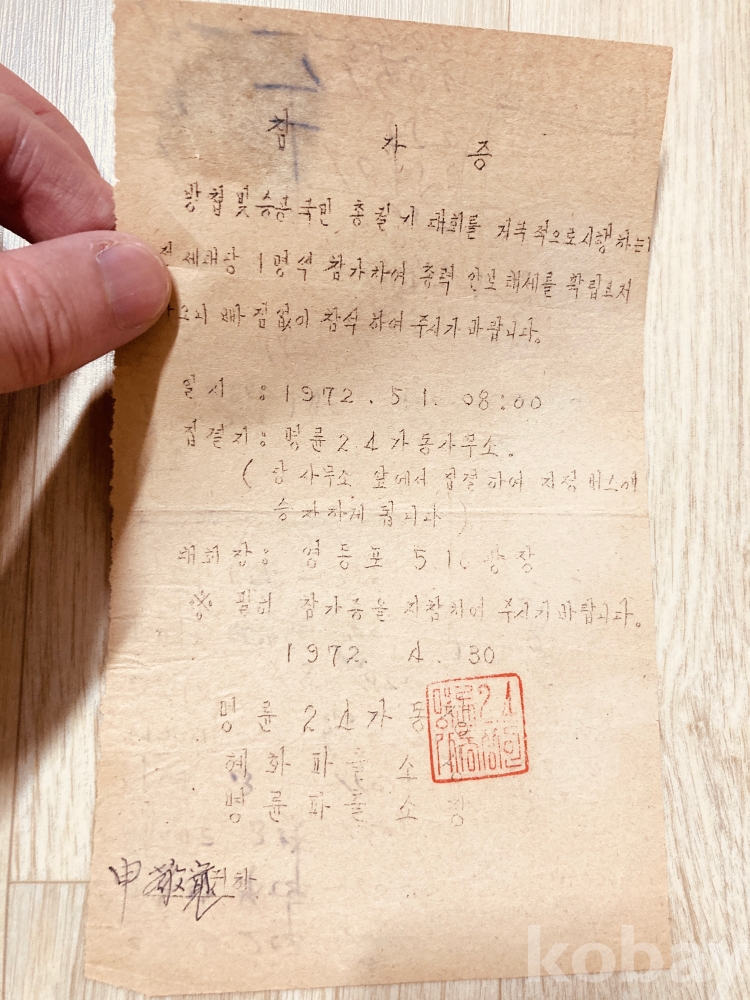 참 가 증
방첩 및 승공 국민 총궐기 대회를 거국적으로 시행하는
세대당 1명씩 참가하여 총력 안보 태세를 확립코저
오니 빠짐없이 참석하여 주시기 바랍니다.
일시 : 1972. 5. 1. 08:00
집결지 : 명륜 2.4가 동사무소.
( 당 사무소 앞에서 집결하여 지정 버스에
승차하게 됩니다 )
대회장 : 영등포 5.16 광장
※ 필히 참가증을 지참하여 주시기 바랍니다.
1972. 4. 30
명륜 2.4가 동
혜화파출소장
명륜파출소장
申
kobay